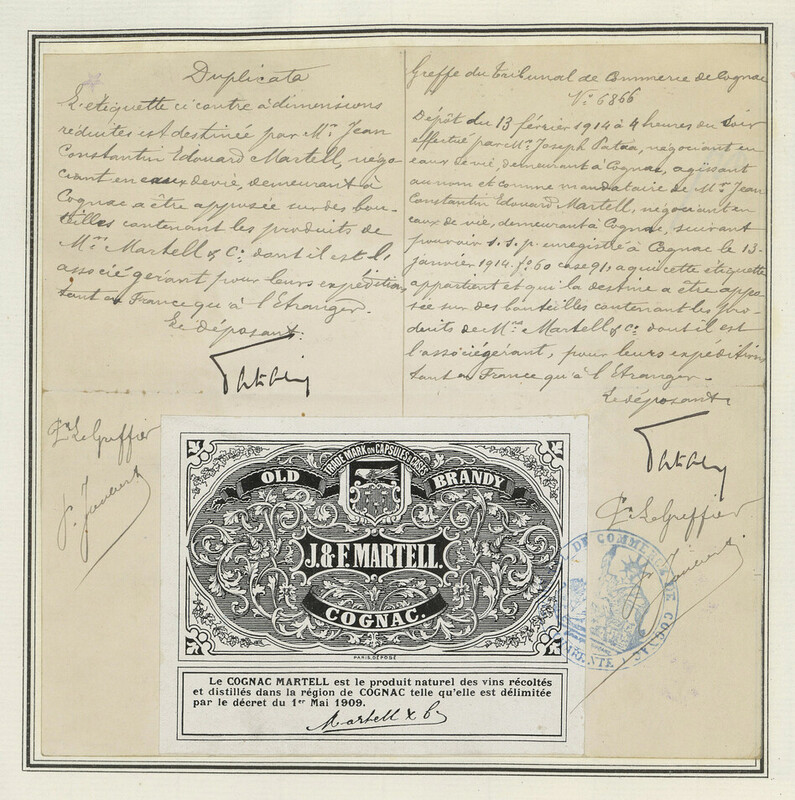 Duplicata
L'etiquette ci contre à dimensions
réduites est destinée par Mr. Jean
Constantin Edouard Martell, négo
ciant en eaux de vie, demeurant à
Cognac a être apposée sur des bou-
teilles contenant les produits de
Mrs Martell & Co. dont il est l'
associé gérant, pour leurs expéditions
tant en France qu'à l'Etranger.
Le déposant:
Le Greffier
Greffe du Tribunal de Commerce de Cognac
No 6866
Dépôt du 13 février 1914 à 4 heures du soir
effectué par Mr. Joseph Pataa, négociant en
eaux de vie, demeurant à Cognac, agissant
au nom et comme mandataire de Mr. Jean
Constantin Edouard Martell, négociant en
eaux de vie, demeurant à Cognac, suivant
pouvoir s.s.p. enregistré à Cognac le 13-
janvier 1914. fo 60 case 91, a qui cette étiquette
appartient et qui la destine a être appo
sée sur des bouteilles contenant les pro-
duits de Mrs Martell & Co. dont il est
l'associé gérant, pour leurs expéditions
tant en France qu'à l'Etranger.
Le déposant:
Le Greffier
TRADE MARK ON CAPSULES & CASES
OLD BRANDY
J.&F. MARTELL.
COGNAC.
PARIS. DÉPOSÉ
Le COGNAC MARTELL est le produit naturel des vins récoltés
et distillés dans la région de COGNAC telle qu'elle est délimitée
par le décret du 1er Mai 1909.
Martell & Co
DE COMMERCE DE COGNAC